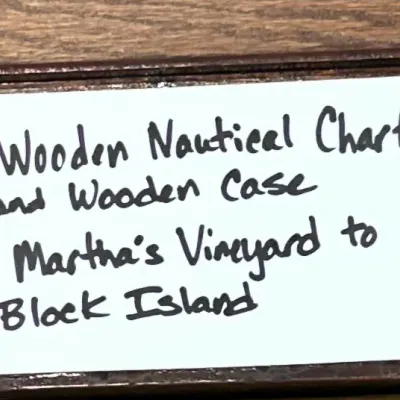 Wooden Nautical Chart
and Wooden Case
Martha's Vineyard to
Block Island